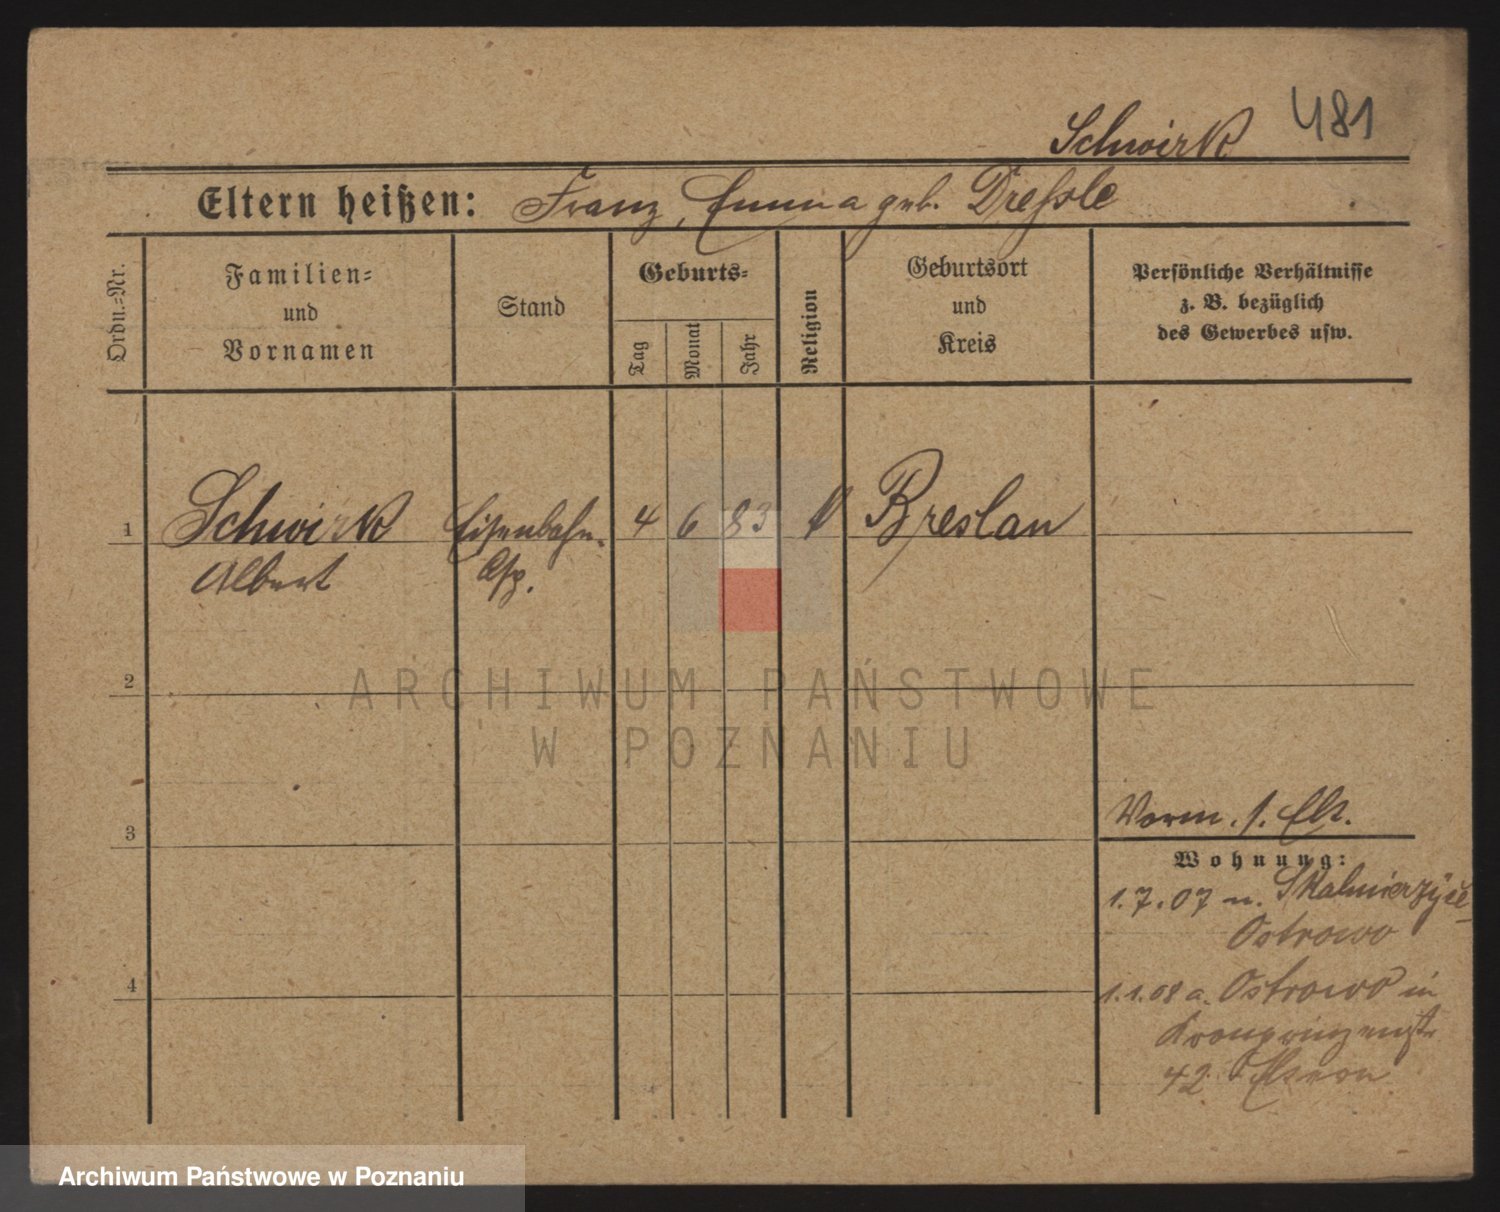 Schwirk 481
Eltern heißen: Franz, Emma geb. Dreßle
Ordn.=Nr.
Familien=
und
Vornamen
Stand
Geburts=
Tag
Monat
Jahr
Religion
Geburtsort
und
Kreis
Persönliche Verhältnisse
z. B. bezüglich
des Gewerbes usw.
1 Schwirk Eisenbahn- 4 6 83 Breslau
Albert Asp.
2
3
Vorm. s. Elt.
Wohnung:
1.7.07 n. Skalmierzyce
Ostrowo
4
1.1.08 a. Ostrowo in
Kronprinzenstr
42
ARCHIWUM PAŃSTWOWE
W POZNANIU
Archiwum Państwowe w Poznaniu